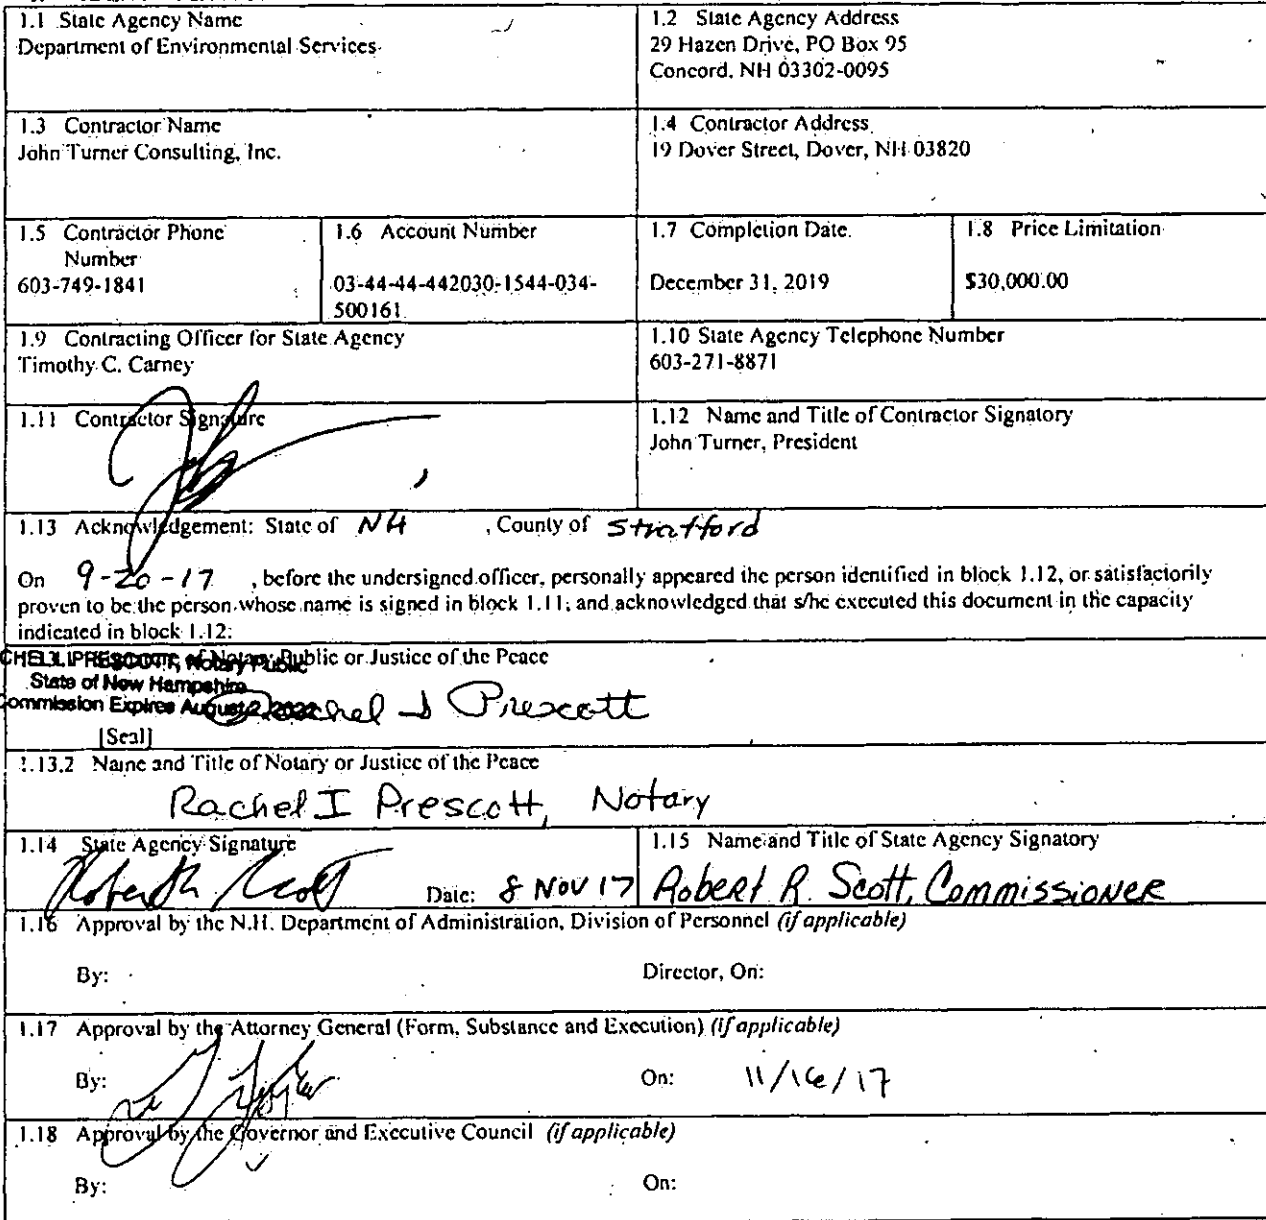 1.1 State Agency Name
Department of Environmental Services
1.2 State Agency Address
29 Hazen Drive, PO Box 95
Concord, NH 03302-0095
1.3 Contractor Name
John Turner Consulting, Inc.
1.4 Contractor Address
19 Dover Street, Dover, NH 03820
1.5 Contractor Phone
Number
603-749-1841
1.6 Account Number
03-44-44-442030-1544-034-
500161
1.7 Completion Date
December 31, 2019
1.8 Price Limitation
$30,000.00
1.9 Contracting Officer for State Agency
Timothy C. Carney
1.10 State Agency Telephone Number
603-271-8871
1.11 Contractor Signature
1.12 Name and Title of Contractor Signatory
John Turner, President
1.13 Acknowledgement: State of NH , County of Strafford
On 9-20-17 , before the undersigned officer, personally appeared the person identified in block 1.12, or satisfactorily
proven to be the person whose name is signed in block 1.11, and acknowledged that s/he executed this document in the capacity
indicated in block 1.12.
of Notary Public or Justice of the Peace
PRESCOTT, Notary Public
State of New Hampshire
Commission Expires August 2, 2022
Rachel I Prescott
[Seal]
1.13.2 Name and Title of Notary or Justice of the Peace
Rachel I Prescott, Notary
1.14 State Agency Signature
Date: 8 Nov 17
1.15 Name and Title of State Agency Signatory
Robert R. Scott, Commissioner
1.16 Approval by the N.H. Department of Administration, Division of Personnel (if applicable)
By: Director, On:
1.17 Approval by the Attorney General (Form, Substance and Execution) (if applicable)
By: On: 11/16/17
1.18 Approval by the Governor and Executive Council (if applicable)
By: On: